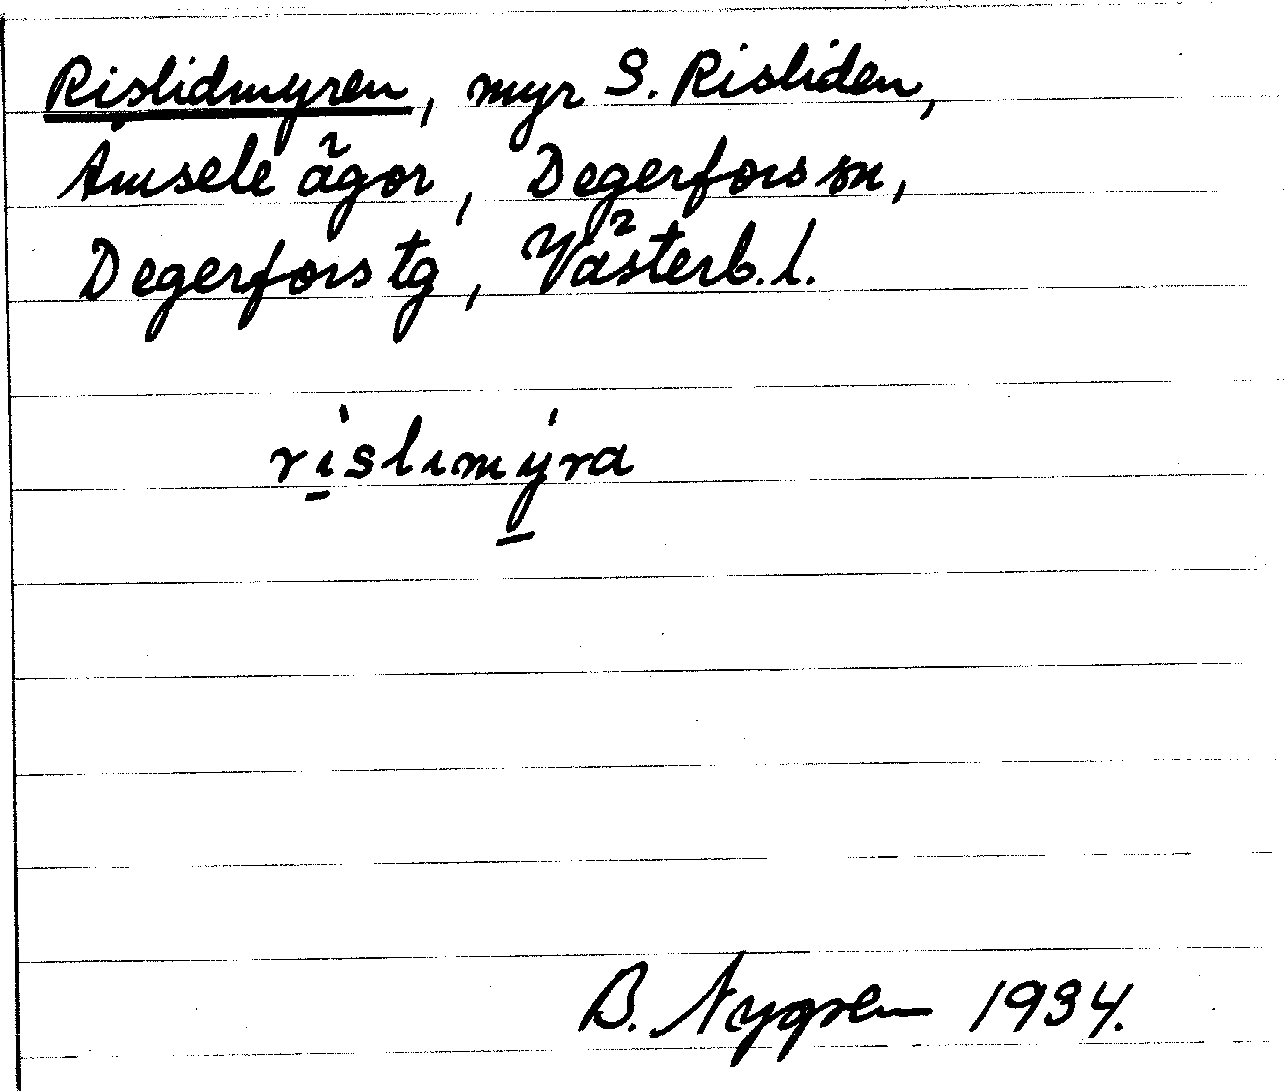 Rislidmyren, myr S. Risliden,
Åmsele ägor, Degerfors sn,
Degerfors tg, Västerb. l.
ri̠slimy̠ra
B. Nygren 1934.